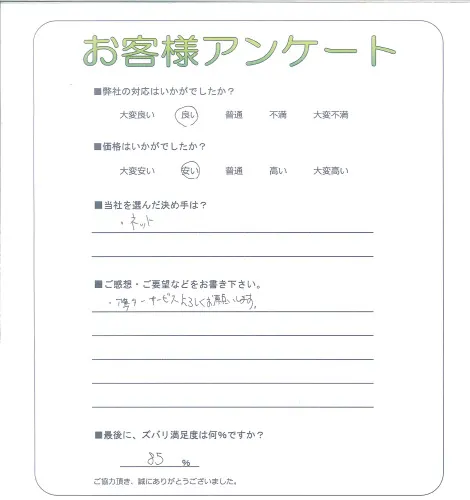 お客様アンケート
■弊社の対応はいかがでしたか？
大変良い 良い 普通 不満 大変不満
■価格はいかがでしたか？
大変安い 安い 普通 高い 大変高い
■当社を選んだ決め手は？
・ネット
■ご感想・ご要望などをお書き下さい。
サービスよろしくお願いします。
■最後に、ズバリ満足度は何%ですか？
85 %
ご協力頂き、誠にありがとうございました。